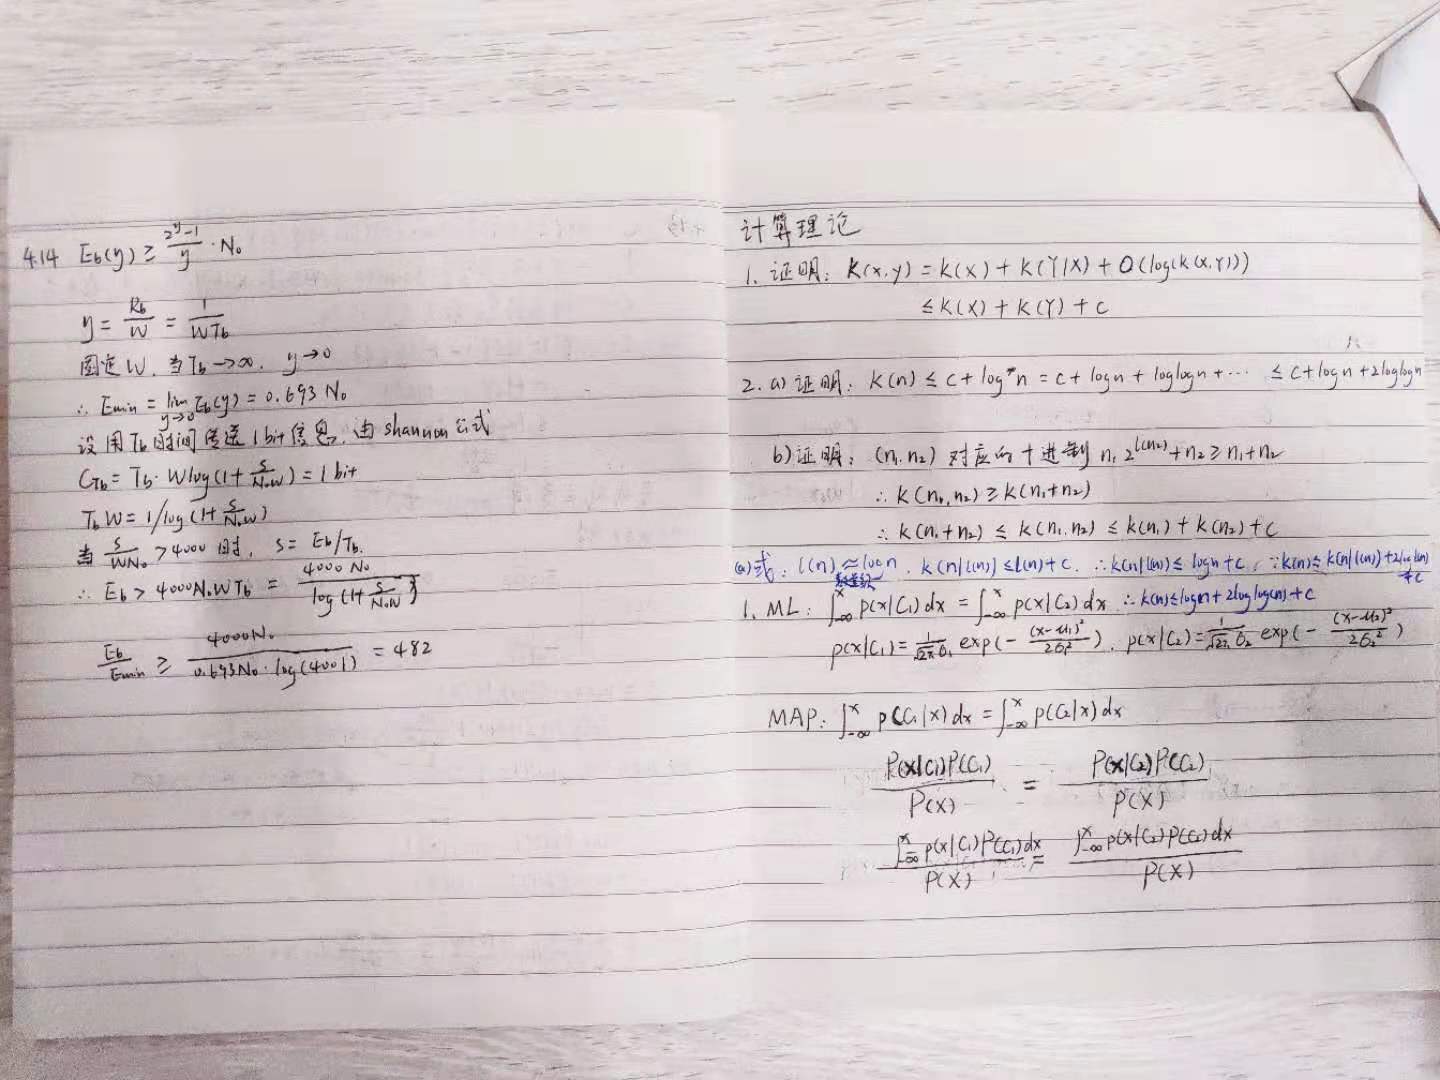 4.14 E_b(y) ≥ (2^y-1)/y · N₀
y = R_b/W = 1/(WT_b)
固定W, 当T_b→∞, y→0
∴ E_min = lim_{y→0} E_b(y) = 0.693 N₀
设用T_b时间传送1bit信息, 由shannon公式
C_{Tb} = T_b · Wlog(1+S/(N₀W)) = 1 bit
T_bW = 1/log(1+S/(N₀W))
当 S/(WN₀) > 4000时, S = E_b/T_b.
∴ E_b > 4000N₀WT_b = 4000N₀/log(1+S/(N₀W))
E_b/E_min ≥ 4000N₀/(0.693N₀·log(4001)) = 482
计算理论
1. 证明: K(x,y) = K(X) + K(Y|X) + O(log(K(X,Y)))
≤ K(X) + K(Y) + C
2. a) 证明: K(n) ≤ C + log*n = C + logn + loglogn + ··· ≤ C + logn + 2loglogn
b) 证明: (n₁.n₂) 对应的十进制 n₁2^{l(n₂)} + n₂ ≥ n₁+n₂
∴ K(n₁,n₂) ≥ K(n₁+n₂)
∴ K(n₁+n₂) ≤ K(n₁,n₂) ≤ K(n₁) + K(n₂) + C
(a)式: l(n) ≈ logn. K(n|l(n)) ≤ l(n)+C. ∴K(n|l(n)) ≤ logn+C, ∵K(n) ≤ K(n|l(n))+2log l(n)
+C
1. ML: ∫_{-∞}^{x} p(x|C₁)dx = ∫_{-∞}^{x} p(x|C₂)dx ∴K(n) ≤ logn+2loglog(n)+C
p(x|C₁) = 1/(√2π σ₁) exp(-(x-μ₁)²/2σ₁²). p(x|C₂) = 1/(√2π σ₂) exp(-(x-μ₂)²/2σ₂²)
MAP: ∫_{-∞}^{x} p(C₁|x)dx = ∫_{-∞}^{x} p(C₂|x)dx
P(x|C₁)P(C₁)/P(X) = P(x|C₂)P(C₂)/P(X)
∫_{-∞}^{x} p(x|C₁)P(C₁)dx/P(X) = ∫_{-∞}^{x} p(x|C₂)P(C₂)dx/P(X)